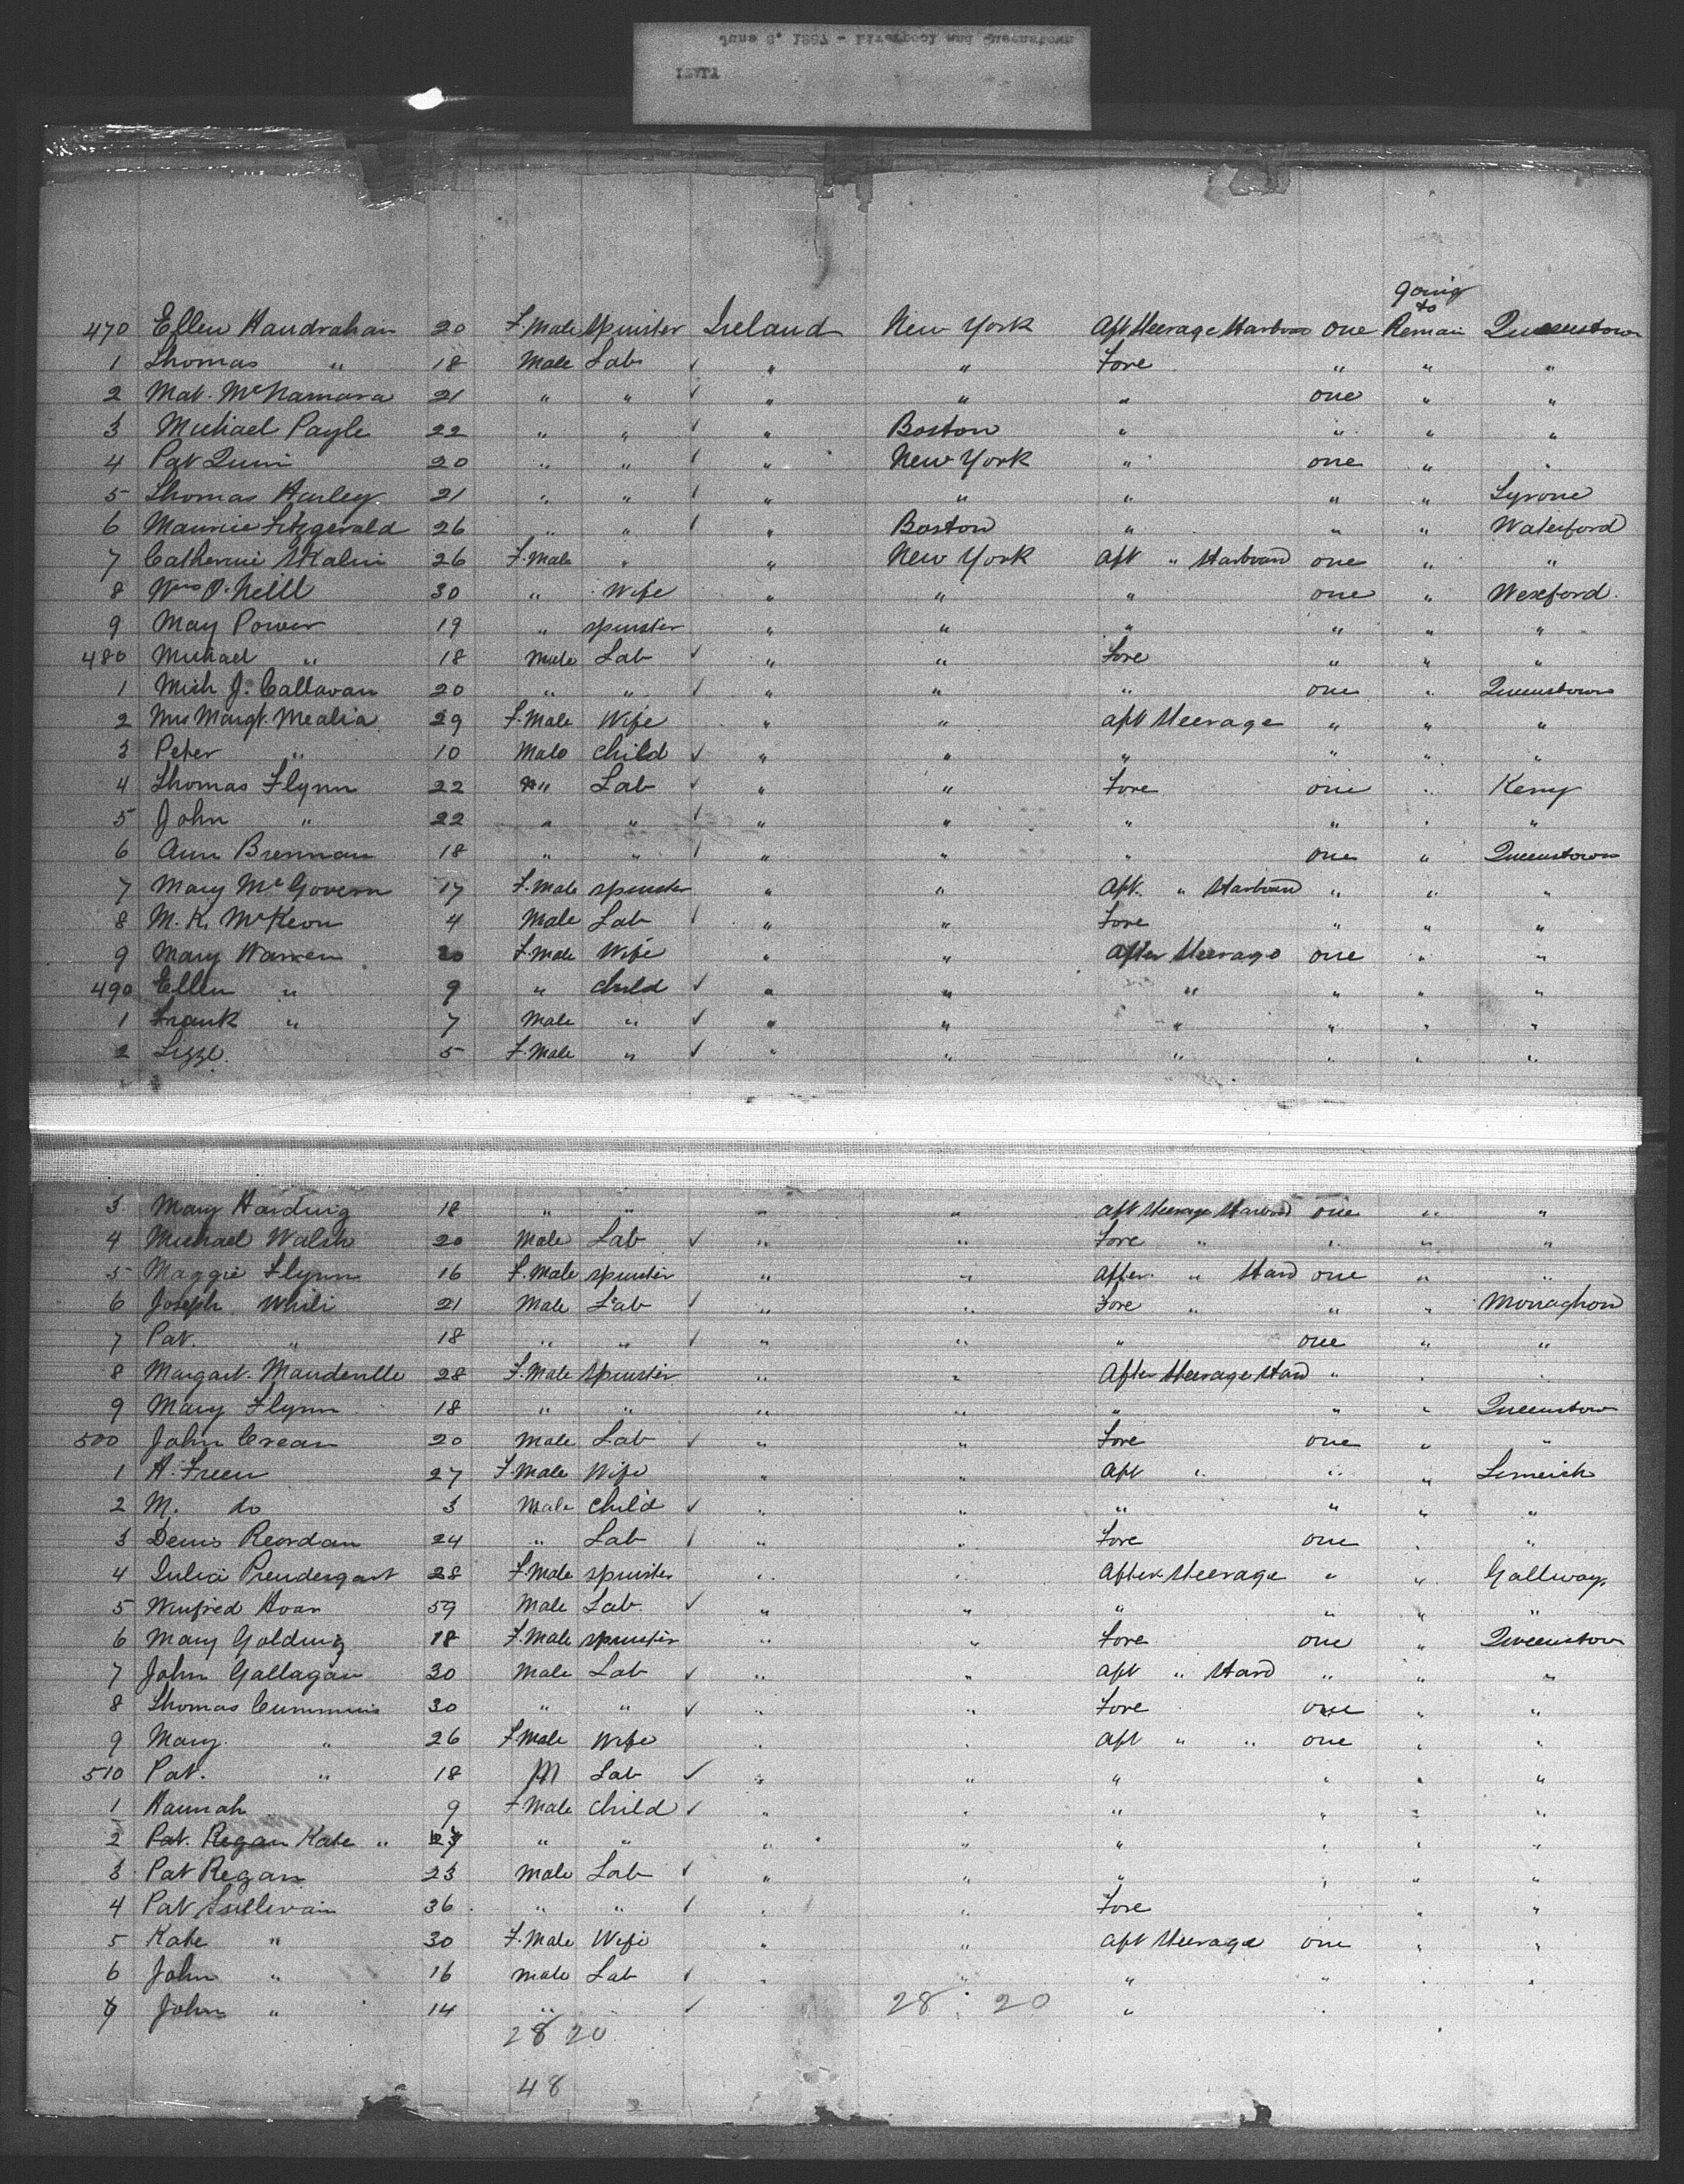 June 8, 1887 - Liverpool and Queenstown
going
to
470 Ellen Handrahan 20 F. Male Spinster Ireland New York Aft Steerage Starboard one Remain Queenstown
1 Thomas " 18 Male Lab ✓ " " Fore " " "
2 Mat. McNamara 21 " " ✓ " " " one " "
3 Michael Payle 22 " " ✓ " Boston " " " "
4 Pat Quin 20 " " ✓ " New York " one " "
5 Thomas Harley 21 " " ✓ " " " " " Tyrone
6 Maurice Fitzgerald 26 " " ✓ " Boston " " " Waterford
7 Catherine 26 F. Male " " New York Aft " Starboard one " "
8 O. Neill 30 " Wife " " " one " Wexford
9 May Power 19 " spinster " " " " " "
480 Michael " 18 Male Lab ✓ " " Fore " " "
1 Mich J. Callavan 20 " " ✓ " " " one " Queenstown
2 Mrs Margt. Mealia 29 F. Male Wife " " aft Steerage " " "
3 Peter " 10 Male Child ✓ " " " " " "
4 Thomas Flynn 22 " Lab ✓ " " Fore one " Kerry
5 John " 22 " " ✓ " " " " " "
6 Ann Brennan 18 " " ✓ " " " one " Queenstown
7 Mary McGovern 17 F. Male spinster " " Aft. " Starboard " " "
8 M. K. McKeon 4 Male Lab ✓ " " Fore " " "
9 Mary Warren 30 F. Male Wife " " After Steerage one " "
490 Ellen " 9 " child ✓ " " " " " "
1 Frank " 7 Male " ✓ " " " " " "
2 Lizze. 5 F. Male " ✓ " " " " " "
3 Mary Harding 18 " " " " aft Steerage Starboard one " "
4 Michael Walsh 20 Male Lab ✓ " " Fore " " " "
5 Maggie Flynn 16 F. Male spinster " " After " Stard one " "
6 Joseph 21 Male Lab ✓ " " Fore " " " Monaghan
7 Pat. " 18 " " ✓ " " " one " "
8 Margart. Mandeville 28 F. Male Spinster " " After Steerage Stard " " "
9 Mary Flynn 18 " " " " " " " Queenstow
500 John Crean 20 Male Lab ✓ " " Fore one " "
1 A. Freen 27 F. Male Wife " " Aft " " " Limerick
2 M. do 3 Male Child ✓ " " " " " "
3 Denis Reordan 24 " Lab ✓ " " Fore one " "
4 Julia Prendergast 28 F. Male spinster " " After Steerage " " Gallway
5 Winfred Hoar 59 Male Lab. ✓ " " " " " "
6 Mary Golding 18 F. Male spinster " " Fore one " Queenstow
7 John Gallagan 30 Male Lab ✓ " " aft " Stard " " "
8 Thomas Cummins 30 " " ✓ " " Fore one " "
9 Mary " 26 F Male Wife " " Aft " " one " "
510 Pat. " 18 M Lab ✓ " " " " " "
1 Hannah 9 F Male Child ✓ " " " " " "
2 Pat. Regan Kate " " " " " " " " "
3 Pat Regan 23 Male Lab ✓ " " " " " "
4 Pat Sullivan 36 " " ✓ " " Fore " "
5 Kate " 30 F. Male Wife " " Aft Steerage one " "
6 John " 16 Male Lab ✓ " " " " " "
7 John " 14 " ✓ "
28 20
28 20
48